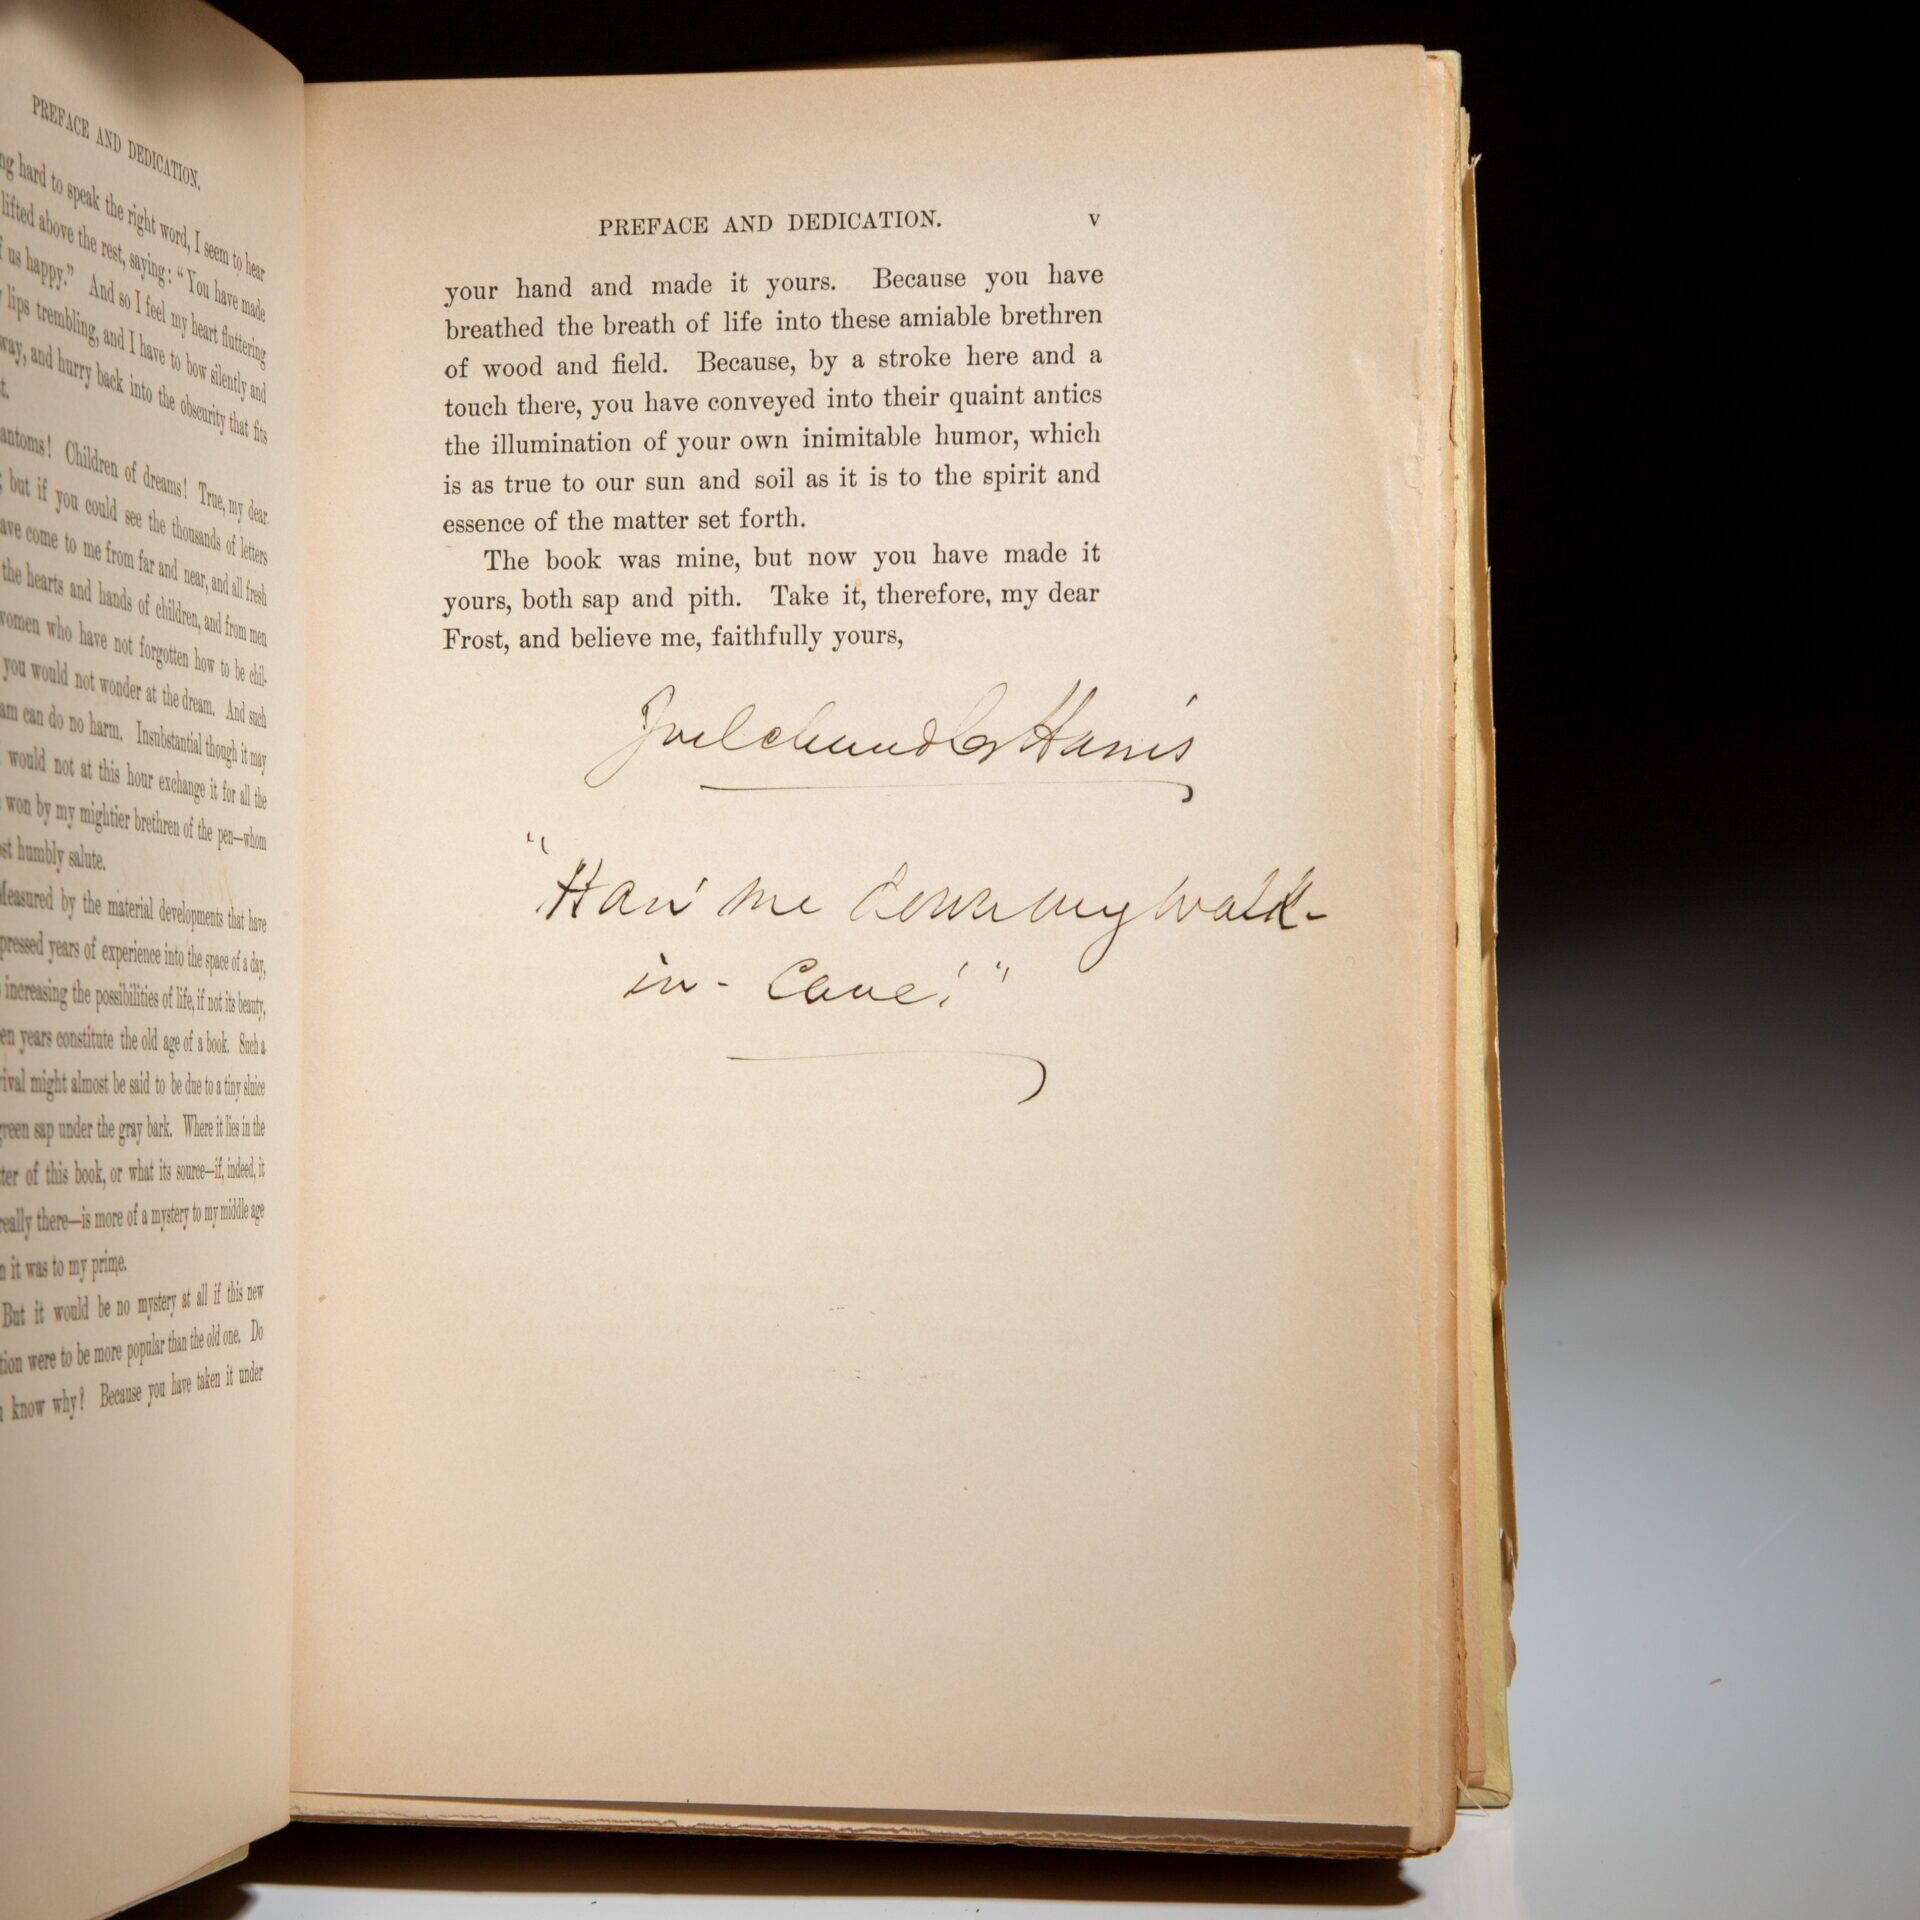 PREFACE AND DEDICATION.
ng hard to speak the right word, I seem to hear
lifted above the rest, saying: “You have made
f us happy.” And so I feel my heart fluttering
lips trembling, and I have to bow silently and
way, and hurry back into the obscurity that fits
t.
antoms! Children of dreams! True, my dear
; but if you could see the thousands of letters
ave come to me from far and near, and all fresh
the hearts and hands of children, and from men
women who have not forgotten how to be chil-
you would not wonder at the dream. And such
am can do no harm. Insubstantial though it may
would not at this hour exchange it for all the
won by my mightier brethren of the pen—whom
st humbly salute.
Measured by the material developments that have
pressed years of experience into the space of a day,
increasing the possibilities of life, if not its beauty,
en years constitute the old age of a book. Such a
vival might almost be said to be due to a tiny sluice
green sap under the gray bark. Where it lies in the
ter of this book, or what its source—if, indeed, it
really there—is more of a mystery to my middle age
n it was to my prime.
But it would be no mystery at all if this new
tion were to be more popular than the old one. Do
know why? Because you have taken it under
PREFACE AND DEDICATION. v
your hand and made it yours. Because you have
breathed the breath of life into these amiable brethren
of wood and field. Because, by a stroke here and a
touch there, you have conveyed into their quaint antics
the illumination of your own inimitable humor, which
is as true to our sun and soil as it is to the spirit and
essence of the matter set forth.
The book was mine, but now you have made it
yours, both sap and pith. Take it, therefore, my dear
Frost, and believe me, faithfully yours,
Joel Chandler Harris
“Han' me down my walk-
in-cane!”